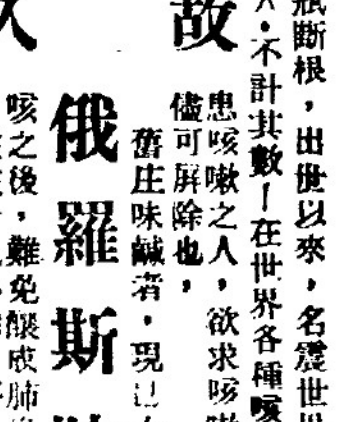 瓶斷根，出世以來，名震世
不計其數！在世界各種咳
故
患咳嗽之人，欲求咳嗽
儘可屏除也，
舊庄味鹹者，現已
俄羅斯
咳之後，難免釀成肺